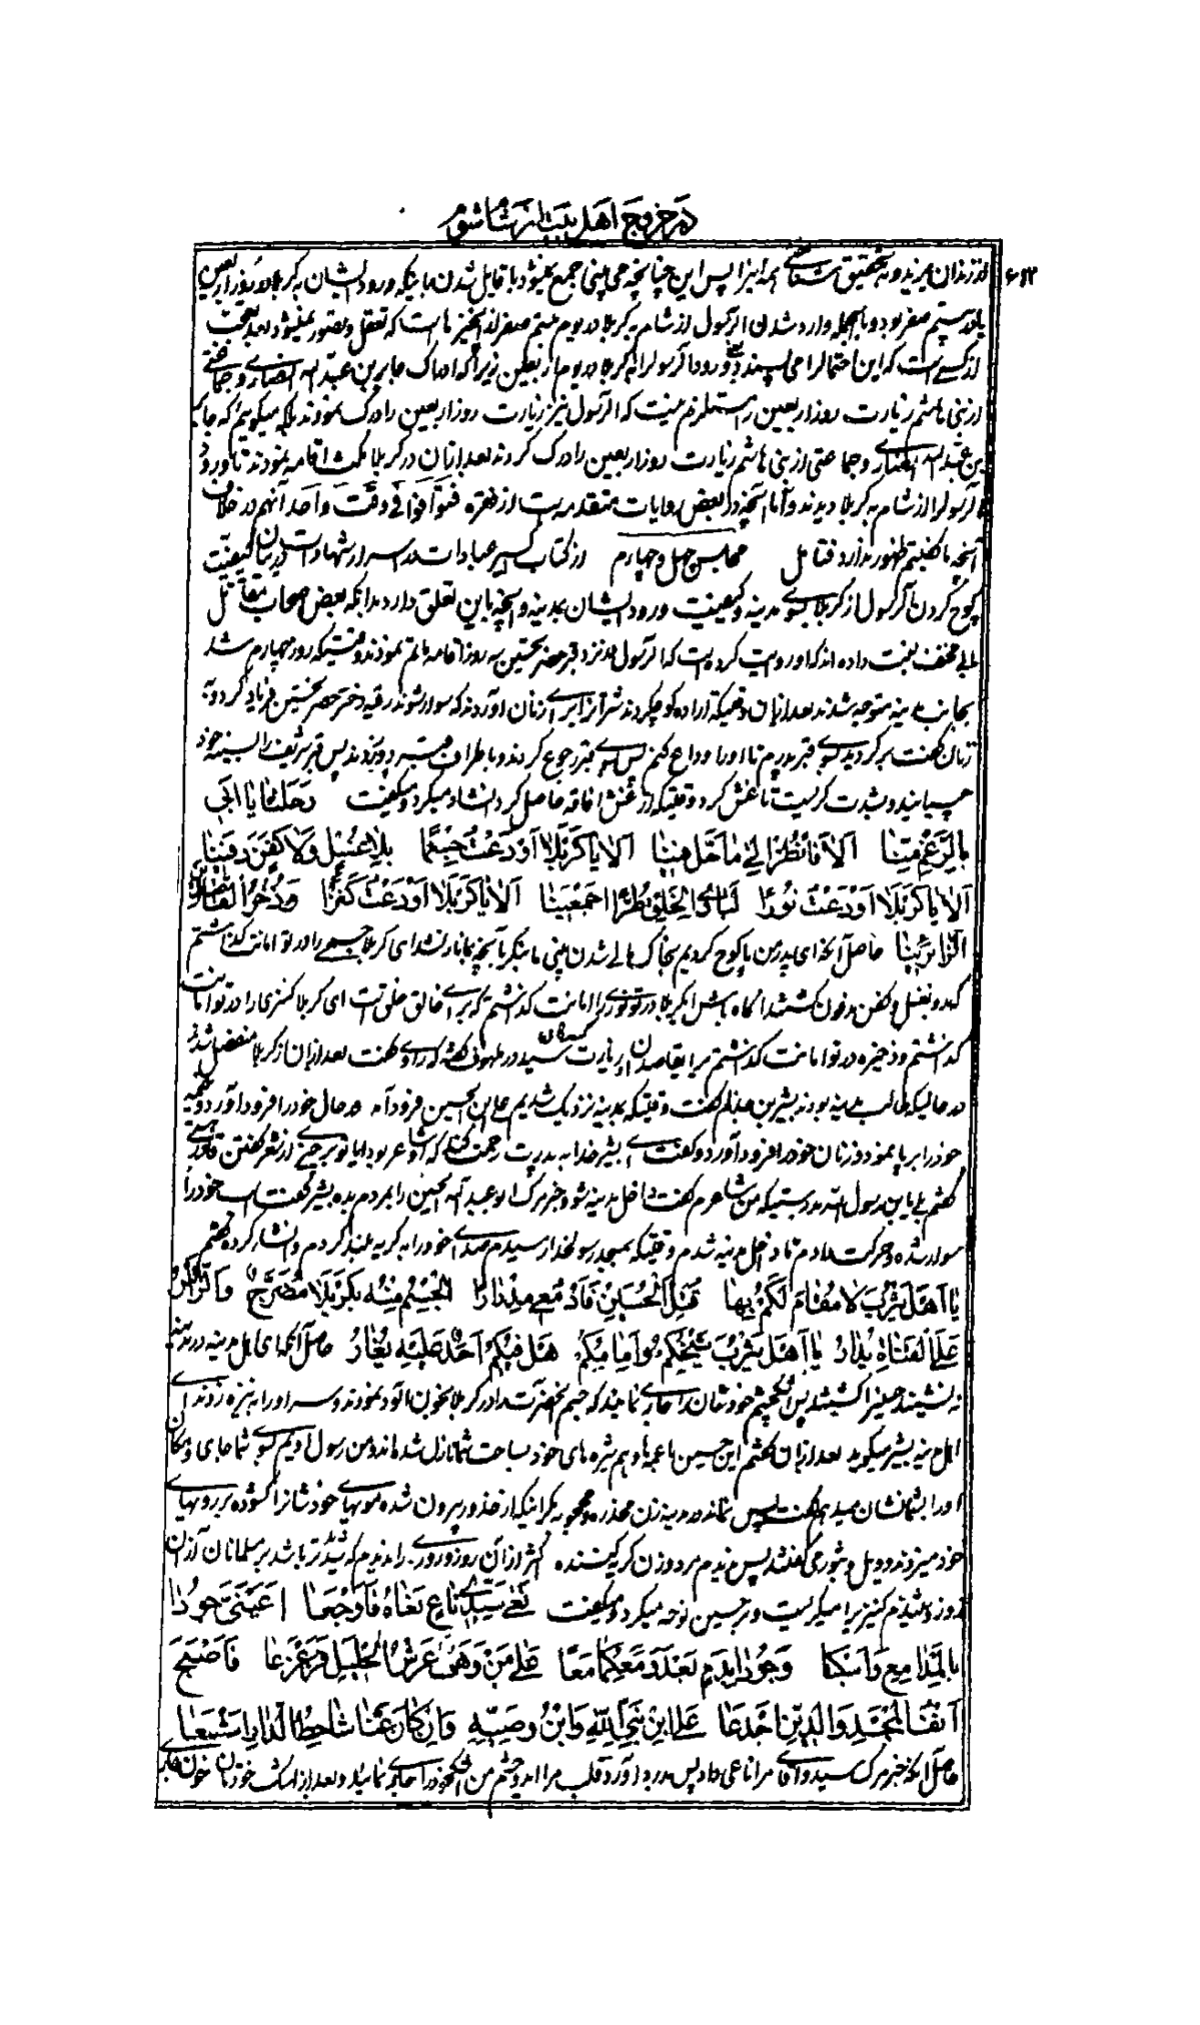 در خروج اهل بیت از شام شوم
۶۰۲
از زندان یزید و به تحقیق این چنانچه می بینی جمع نمیشود با قایل شدن باینکه ورود ایشان به کربلا در روز اربعین
یا در بیستم صفر بود و بالجمله وارد شدن آل رسول از شام به کربلا در یوم بیستم صفر از آن چیزها است که تعقل و تصور نمیشود بعد تعجب
از کسی است که این احتمال را می پسندد و ورود آل رسول را به کربلا در یوم اربعین زیرا که ادراک جابر بن عبد الله انصاری و جماعتی
از بنی هاشم زیارت روز اربعین را مستلزم نیست که آل رسول نیز زیارت روز اربعین را درک نمودند بلکه میگوئیم که جابر
بن عبد الله انصاری و جماعتی از بنی هاشم زیارت روز اربعین را درک کردند بعد از آن در کربلا مکث و اقامه نمودند تا ورود
آل رسول را از شام به کربلا دیدند و اما آنچه در بعض روایات متقدمه است از فقره فتوافوا فی وقت واحد آنهم در خلاف
آنچه ما گفتیم ظهور ندارد فتامل مجلس چهل و چهارم از کتاب اکسیر عبادات در اسرار شهادات در بیان کیفیت
کوچ کردن آل رسول از کربلا بسوی مدینه و کیفیت ورود ایشان بمدینه و آنچه باین تعلق دارد بدانکه بعض اصحاب مقاتل
بابی مخنف نسبت داده اند که او روایت کرده است که آل رسول در نزد قبر حضرت حسین سه روز اقامه ماتم نمودند وقتیکه روز چهارم شد
بجانب مدینه متوجه شدند بعد از آن وقتیکه اراده کوچ کردند شترانرا برای زنان آوردند که سوار شوند رقیه دختر حضرت حسین فریاد کرد و به
زنان گفت برگردید بسوی قبر پدرم تا او را وداع کنم پس بسوی قبر رجوع کردند و باطراف قبر دویدند پس قبر شریف را بسینه خود
چسبانید و بشدت گریست تا غش کرد وقتیکه از غش افاقه حاصل کرد انشاد میکرد و میگفت رحلنا یا ابی
بالرغم منا الا فانظر الی ما حل فینا الا یا کربلا اودعت جسما بلا غسل ولا کفن دفینا
الا یا کربلا اودعت نورا لباری الخلق طرا اجمعینا الا یا کربلا اودعت کنزا وذخرا لقاصدین
الزائرینا حاصل آنکه ای پدر من ما کوچ کردیم بخاک مالی شدن بینی ما بنگر بآنچه بما نازل شد ای کربلا جسمی را در تو امانت گذاشتم
که بدون غسل و کفن مدفون گشت آگاه باش ای کربلا در تو نوری را امانت گذاشتم که برای خالق خلق است ای کربلا گنزی را در تو امانت
گذاشتم و ذخیره در تو امانت گذاشتم برای قاصدان زیارت کنندگان سید در ملهوف گفته که راوی گفت بعد از آن از کربلا منفصل شدند
در حالیکه طالب مدینه بودند بشیر بن جذلم گفت وقتیکه بمدینه نزدیک شدیم علی بن الحسین فرود آمد و رحال خود را فرود آورد و خیمه
خود را بر پا نمود و زنان خود را فرود آورد و گفت ای بشیر خدا به پدرت رحمت کند که او شاعر بود ایا تو بر چیزی از شعر گفتن قادر هستی
گفتم بلی یا بن رسول الله بدرستیکه من شاعرم گفت داخل مدینه شو و خبر مرگ ابو عبد الله الحسین را بمردم بده بشیر گفت اسب خود را
سوار شده و حرکت دادم تا داخل مدینه شدم وقتیکه بمسجد رسولخدا رسیدم صدای خود را به گریه بلند کردم و انشاد کرده گفتم
یا اهل یثرب لا مقام لکم بها قتل الحسین فادمعی مدرارا الجسم منه بکربلا مضرج والراس منه
علی القناة یدار یا اهل یثرب شیخکم و امامکم هل فیکم احد علیه یغار حاصل آنکه ای اهل مدینه در مدینه
ننشینید حسین را کشتند پس اشک چشم خودتان را جاری نمائید که جسم آنحضرت را در کربلا بخون آلوده نمودند و سر او را به نیزه زدند ای
اهل مدینه بشیر میگوید بعد از آن گفتم این علی بن حسین با عمه ها و همشیره های خود بساحت شما نازل شده اند و من رسول اویم بسوی شما جای و مکان
او را بشما نشان میدهم گفت پس نماند در مدینه زن مخدره و محجوبه مگر اینکه از خدور بیرون شده موهای خودشانرا گشوده بر روهای
خود میزدند و ویل و ثبور می گفتند پس ندیدم مرد و زن گریه کننده اکثر از آن روز و روزی را ندیدم که شدیدتر باشد بر مسلمانان از آن
روز و شنیدم کنیزی را میگریست و بر حسین نوحه میکرد و میگفت نعی سیدی ناع نعاه فاوجعا اعینی جودا
بالمدامع واسکبا وجودا بدمع بعد دمعکما معا علی من وهی عرش الجلیل فزعزعا فاصبح
انف المجد والدین اجدعا علی ابن نبی الله وابن وصیه وان کان عنا شاحط الدار اشسعا
حاصل آنکه خبر مرگ سید و آقای مرا ناعی داد پس بدرد آورد قلب مرا ای دو چشم من اشک خود را جاری نمائید و بعد از اشک خودتان خون جاری